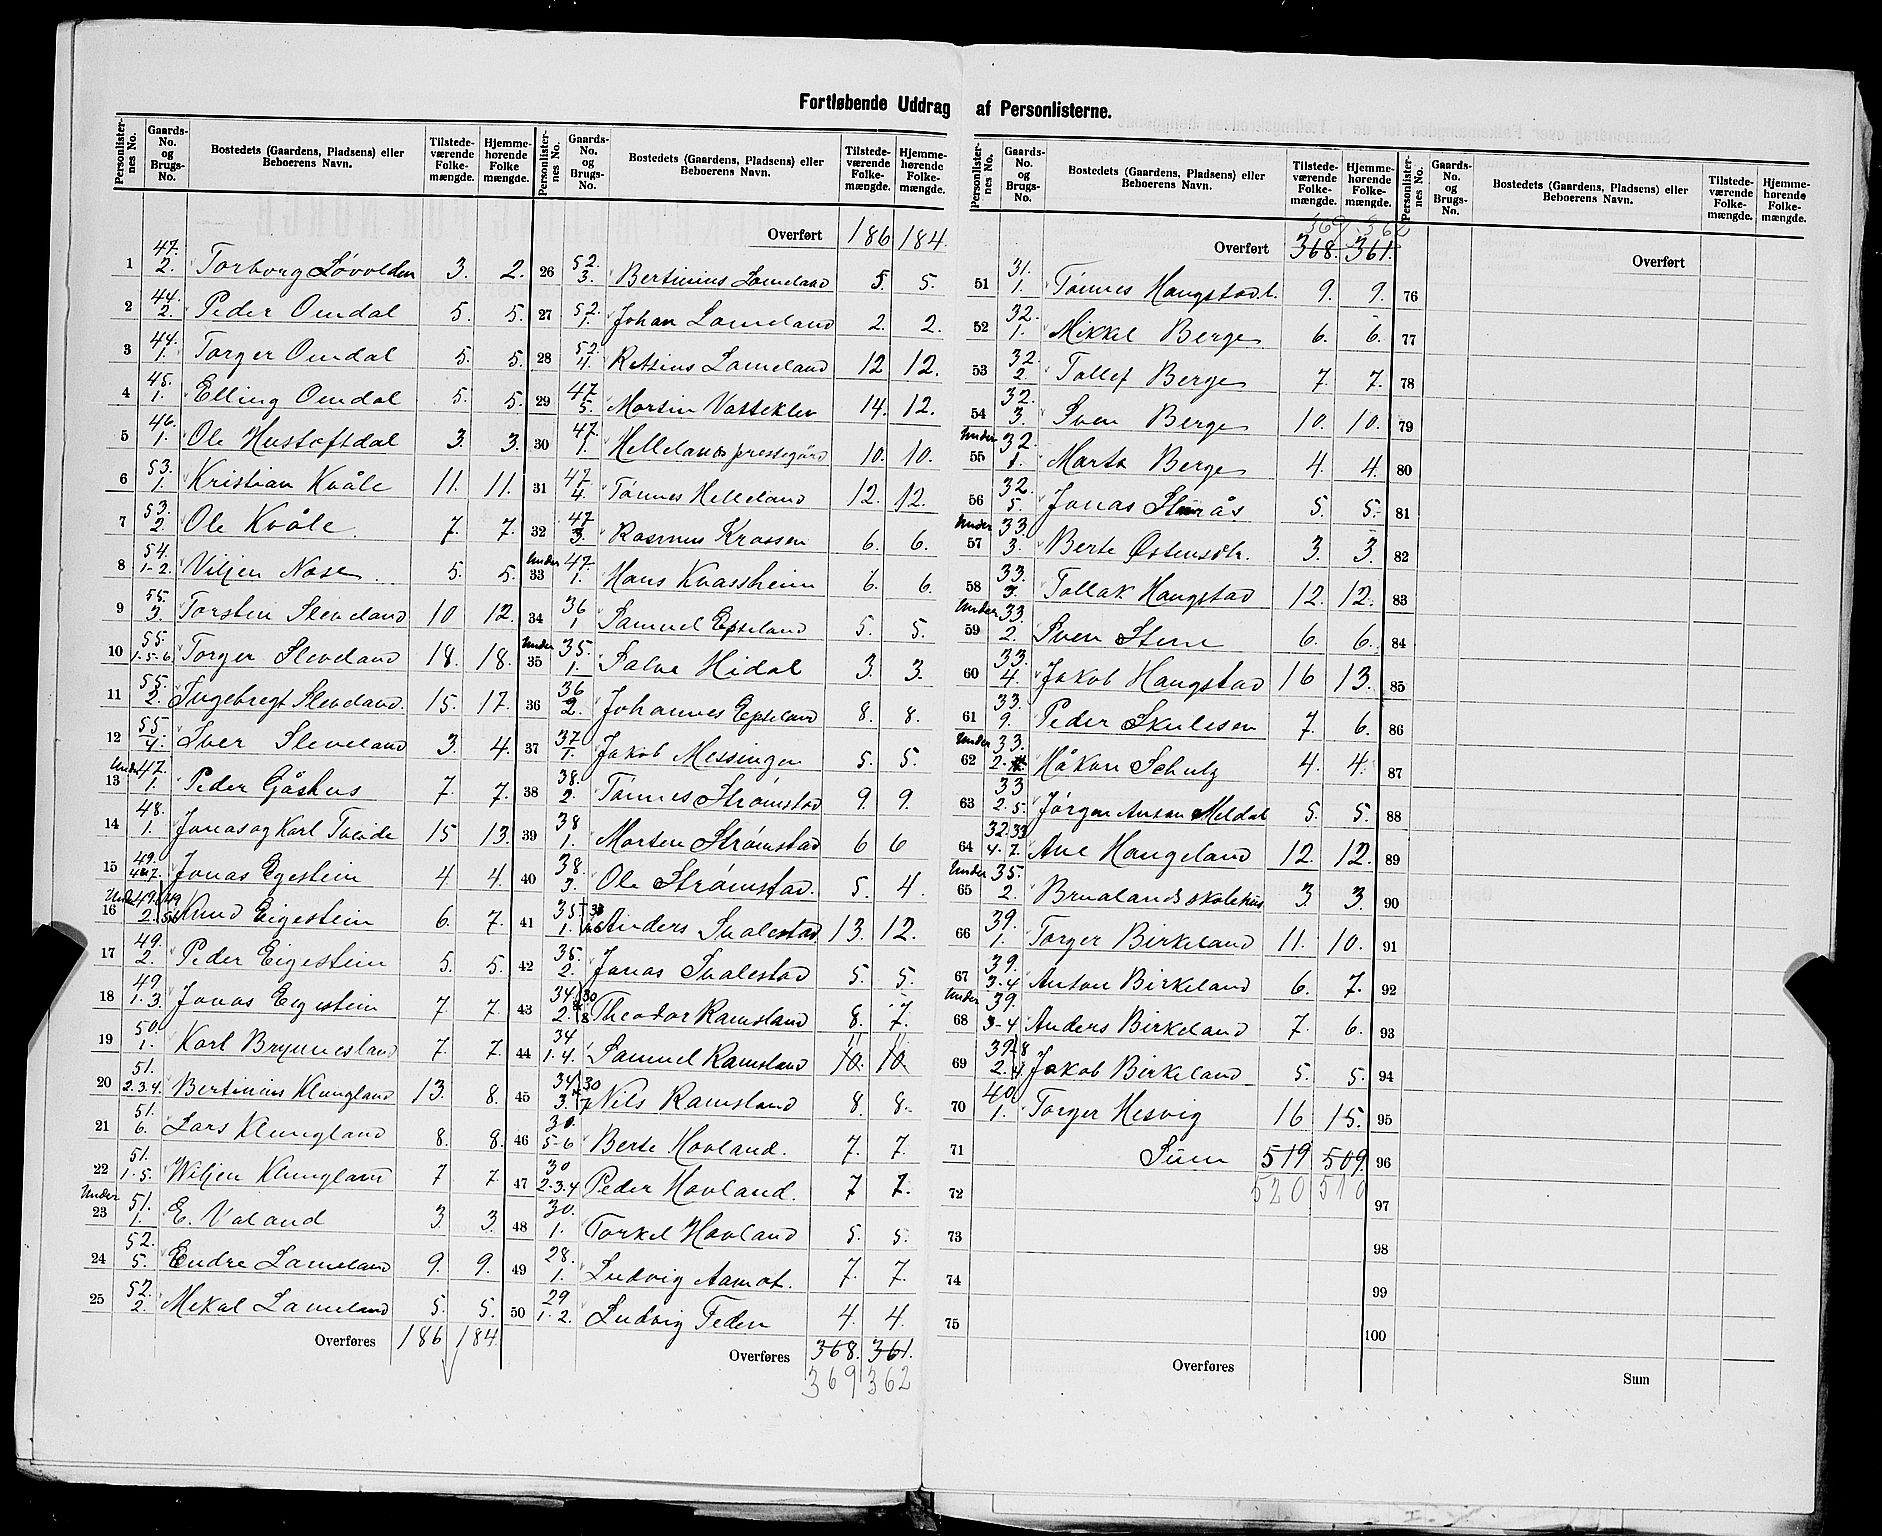 Fortløbende Uddrag af Personlisterne.
Personlister-nes No. | Gaards-No. og Brugs-No. | Bostedets (Gaardens, Pladsens) eller Beboerens Navn. | Tilstede-værende Folke-mængde. | Hjemme-hørende Folke-mængde.
1 47. 2. Torborg Løvolden 3. 2.
2 44. 2. Peder Omdal 5. 5.
3 44. 1. Torger Omdal 5. 5.
4 45. 1. Elling Omdal 5. 5.
5 46. 1. Ole Hustoftdal 3. 3.
6 53. 1. Kristian Kvåle 11. 11.
7 53. 2. Ole Kvåle. 7. 7.
8 54. 1-2. Viljen Nose 5. 5.
9 55. 3. Torsten Sleveland 10 12.
10 55. 1-5-6 Torger Sleveland 18. 18.
11 55. 2. Ingebregt Sleveland. 15. 17.
12 55. 4. Iver Sleveland 3. 4.
Under 13 47. 1. Peder Gåshus 7. 7.
14 48. 1. Jonas og Karl Tveide 15 13.
15 49. Jonas Egestein 4 4.
Under 16 49. 2. Knud Eigestein 6. 7.
17 49. 2. Peder Eigestein 5. 5.
18 49 1-3. Jonas Eigestein 7. 7.
19 50. 1. Karl Brynnesland 7. 7.
20 51. 2.3.4. Bertinius Klungland 13. 8.
21 51. 6. Lars Klungland 8. 8.
22 51. 1-5. Wiljen Klungland 7 7.
Under 23 51. 1. E. Valand 3. 3.
24 52. 5. Endre Lameland 9. 9.
25 52. 2. Mikal Lameland 5. 5.
Overføres 186 184.
Personlister-nes No. | Gaards-No. og Brugs-No. | Bostedets (Gaardens, Pladsens) eller Beboerens Navn. | Tilstede-værende Folke-mængde. | Hjemme-hørende Folke-mængde.
Overført 186 184.
26 52. 3. Bertinius Lameland 5. 5.
27 52. 1. Johan Lameland 2. 2.
28 52. 4. Retsius Lameland 12 12.
29 47 5. Martin Vasseklev 14. 12.
30 47. 1. Hellelands prestegård 10. 10.
31 47 4. Tønnes Helleland 12. 12.
32 47 3. Rasmus Krossen 6. 6.
Under 33 47. 1. Hans Kvassheim 6. 6.
34 36 1 Samuel Epseland 5. 5.
Under 35 35. 1. Salve Hidal 3. 3.
36 36 2. Johannes Epseland 8. 8.
37 37 1. Jakob Messingen 5. 5.
38 38. 2. Tønnes Strømstad 9. 9.
39 38 1. Morten Strømstad 6 6
40 38. 3. Ole Strømstad. 5. 4.
41 35 1. Anders Svalestad 13. 12.
42 35. 2. Jonas Svalestad 5. 5.
43 34 30 2. 8 Theodor Ramsland 8. 7.
44 34 1.4. Samuel Ramsland 10. 10. 11 11
45 34 30 3. 7 Nils Ramsland 8. 8.
46 30. 5-6 Berte Hovland. 7. 7.
47 30 2.3.4 Peder Hovland. 7 7.
48 30. 1. Torkel Hovland 5. 5.
49 28. 1. Ludvig Aamot. 7. 7.
50 29 1.2. Ludvig Feden 4. 4.
Overføres 368. 361.
369 362
Personlister-nes No. | Gaards-No. og Brugs-No. | Bostedets (Gaardens, Pladsens) eller Beboerens Navn. | Tilstede-værende Folke-mængde. | Hjemme-hørende Folke-mængde.
369 362
Overført 368. 361.
51 31. 1. Tønnes Haugstad. 9. 9.
52 32. 1. Mikkel Berge 6. 6.
53 32. 2 Tollef Berge 7. 7.
54 32. 3. Sven Berge 10. 10.
Under 55 32. 1. Marta Berge 4. 4.
56 32. 5. Jonas Sturås 5. 5.
Under 57 33. 3. Berte Østensdtr. 3. 3.
58 33. 3. Tollak Haugstad 12. 12.
Under 59 33. 2. Sven Stene 6. 6.
60 33. 4. Jakob Haugstad 16 13.
61 33. 9. Peder Skulesen 7. 6.
Under 62 33. 2. Håkon Schulz 4. 4.
63 33 2. 5. Jørgen Anton Meldal 5. 5.
64 32. 33 4. 7. Ane Haugeland 12. 12.
Under 65 35. 2. Brualands skolehus 3. 3.
66 39. 1. Torger Birkeland 11. 10.
67 39. 3.4 Anton Birkeland 6. 7.
Under 68 39. 3-4 Anders Birkeland 7 6.
69 39 8 2. 4. Jakob Birkeland 5. 5.
70 40. 1. Torger Hesvig 16 15.
71 Sum 519 509.
72 520 510
73
74
75
Overføres
Personlister-nes No. | Gaards-No. og Brugs-No. | Bostedets (Gaardens, Pladsens) eller Beboerens Navn. | Tilstede-værende Folke-mængde. | Hjemme-hørende Folke-mængde.
Overført
76
77
78
79
80
81
82
83
84
85
86
87
88
89
90
91
92
93
94
95
96
97
98
99
100
Sum